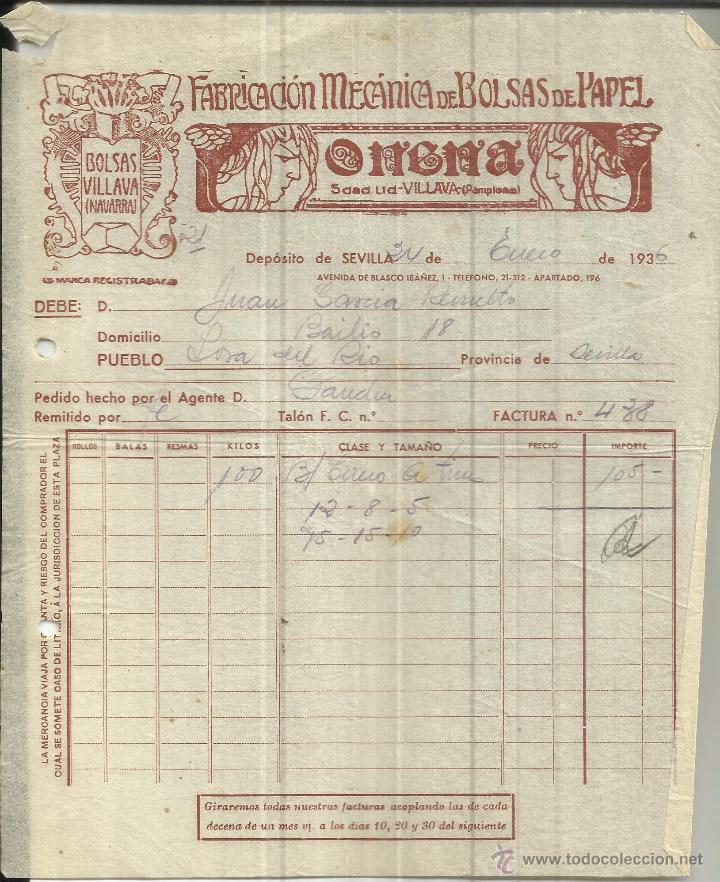 FABRICACIÓN MECÁNICA DE BOLSAS DE PAPEL
BOLSAS
VILLAVA
(NAVARRA)
MARCA REGISTRADA
ONENA
Sdad. Ltd.-VILLAVA-(Pamplona)
21
Depósito de SEVILLA de Enero de 1936
AVENIDA DE BLASCO IBÁÑEZ, 1 - TELEFONO, 21-312 - APARTADO, 196
DEBE: D. Juan Garcia
Domicilio Bailio 18
PUEBLO Lora del Rio Provincia de Sevilla
Pedido hecho por el Agente D.
Remitido por Talón F. C. n.º FACTURA n.º 438
ROLLOS BALAS RESMAS KILOS CLASE Y TAMAÑO PRECIO IMPORTE
100 B/ 105-
12-8-5
15-15-10
LA MERCANCIA VIAJA POR CUENTA Y RIESGO DEL COMPRADOR EL
CUAL SE SOMETE CASO DE LITIGIO, Á LA JURISDICCION DE ESTA PLAZA
Giraremos todas nuestras facturas acoplando las de cada
decena de un mes v/. a los días 10, 20 y 30 del siguiente
www.todocoleccion.net